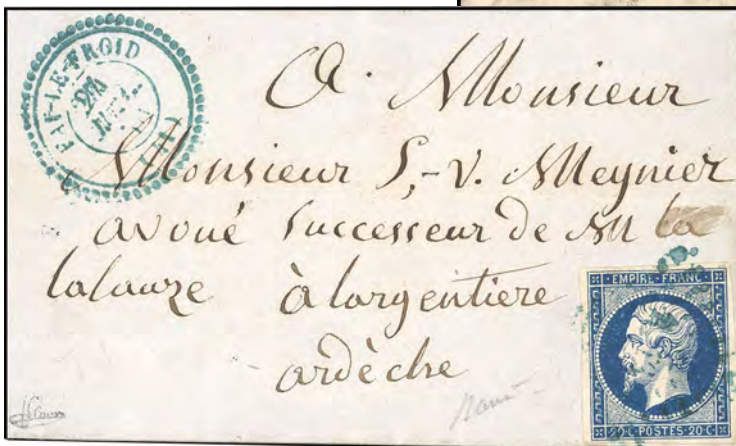 FAY-LE-FROID
A Monsieur
Monsieur S,-V. Meynier
avoué Successeur de M la
lalauze à largentiere
ardèche
EMPIRE-FRANC
20·C·POSTES·20·C